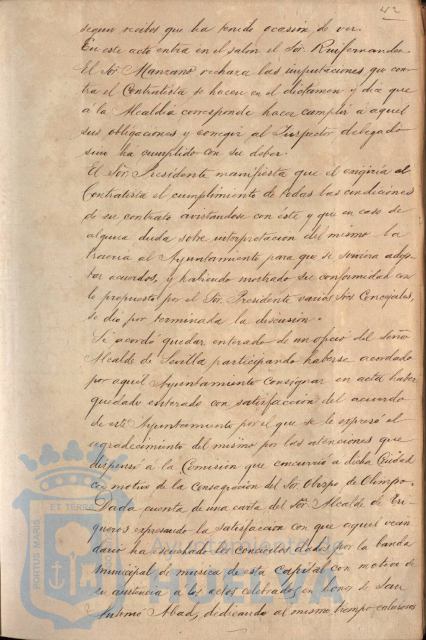 42
segun recibos que ha tenido ocasion de ver.
En este acto entra en el salon el Sor. Ruifernandez
El Sor Manzano rechaza las imputaciones que con-
tra el Contratista se hacen en el dictamen y dice que
á la Alcaldia corresponde hacer cumplir á aquel
sus obligaciones y corregir al Inspector delegado
sino ha cumplido con su deber.
El Sor. Presidente manifiesta que el exigiria al
Contratista el cumplimiento de todas las condiciones
de su contrato avistandose con éste y que en caso de
alguna duda sobre interpretacion del mismo la
traeria al Ayuntamiento para que se sirviera adop-
tar acuerdos, y habiendo mostrado su conformidad con
lo propuesto por el Sor. Presidente varios Sres Concejales,
se dio por terminada la discusion.
Se acordó quedar enterado de un oficio del señor
Alcalde de Sevilla participando haberse acordado
por aquel Ayuntamiento consignar en acta haber
quedado enterado con satisfaccion del acuerdo
de este Ayuntamiento por el que se le expresó el
agradecimiento del mismo por las atenciones que
dispensó á la Comision que concurrió á dicha Ciudad
con motivo de la Consagracion del Sor Obispo de Olimpo.
Dada cuenta de una carta del Sor Alcalde de Tri-
gueros expresando la satisfaccion con que aquel vecin-
dario ha escuchado los conciertos dados por la banda
municipal de musica de esta Capital con motivo de
su asistencia á los actos celebrados en honor de San
Antonio Abad, dedicando al mismo tiempo calurosos
PORTUS MARIS ET TERRAE
Ayuntamiento de
HUELVA